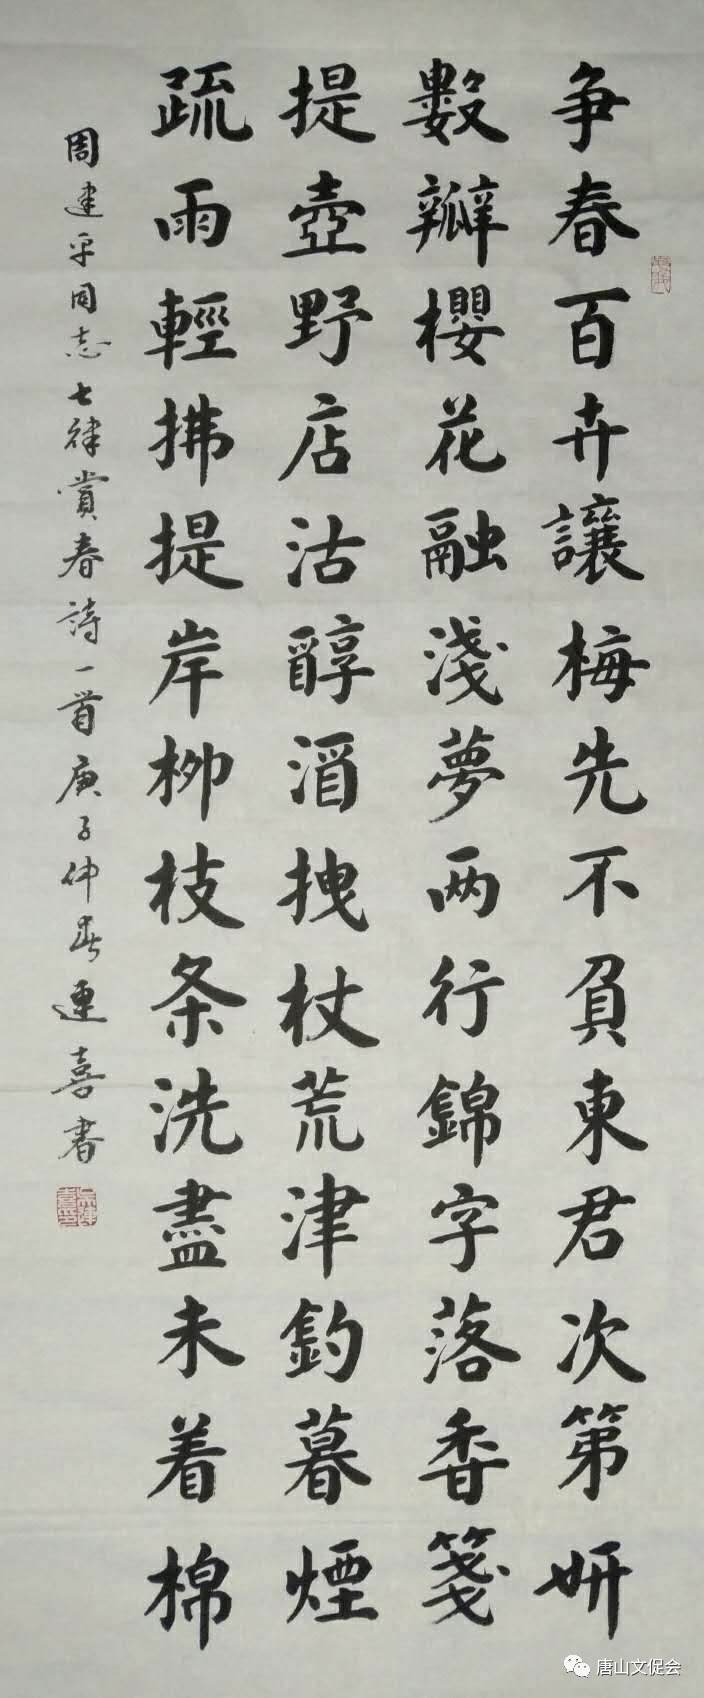 争春百卉讓梅先不負東君次第妍
數瓣櫻花融淺夢两行錦字落香箋
提壺野店沽醇酒拽杖荒津釣暮煙
疏雨輕拂提岸柳枝条洗盡未着棉
周建平同志七律賞春詩一首庚子仲春連喜書
唐山文促会